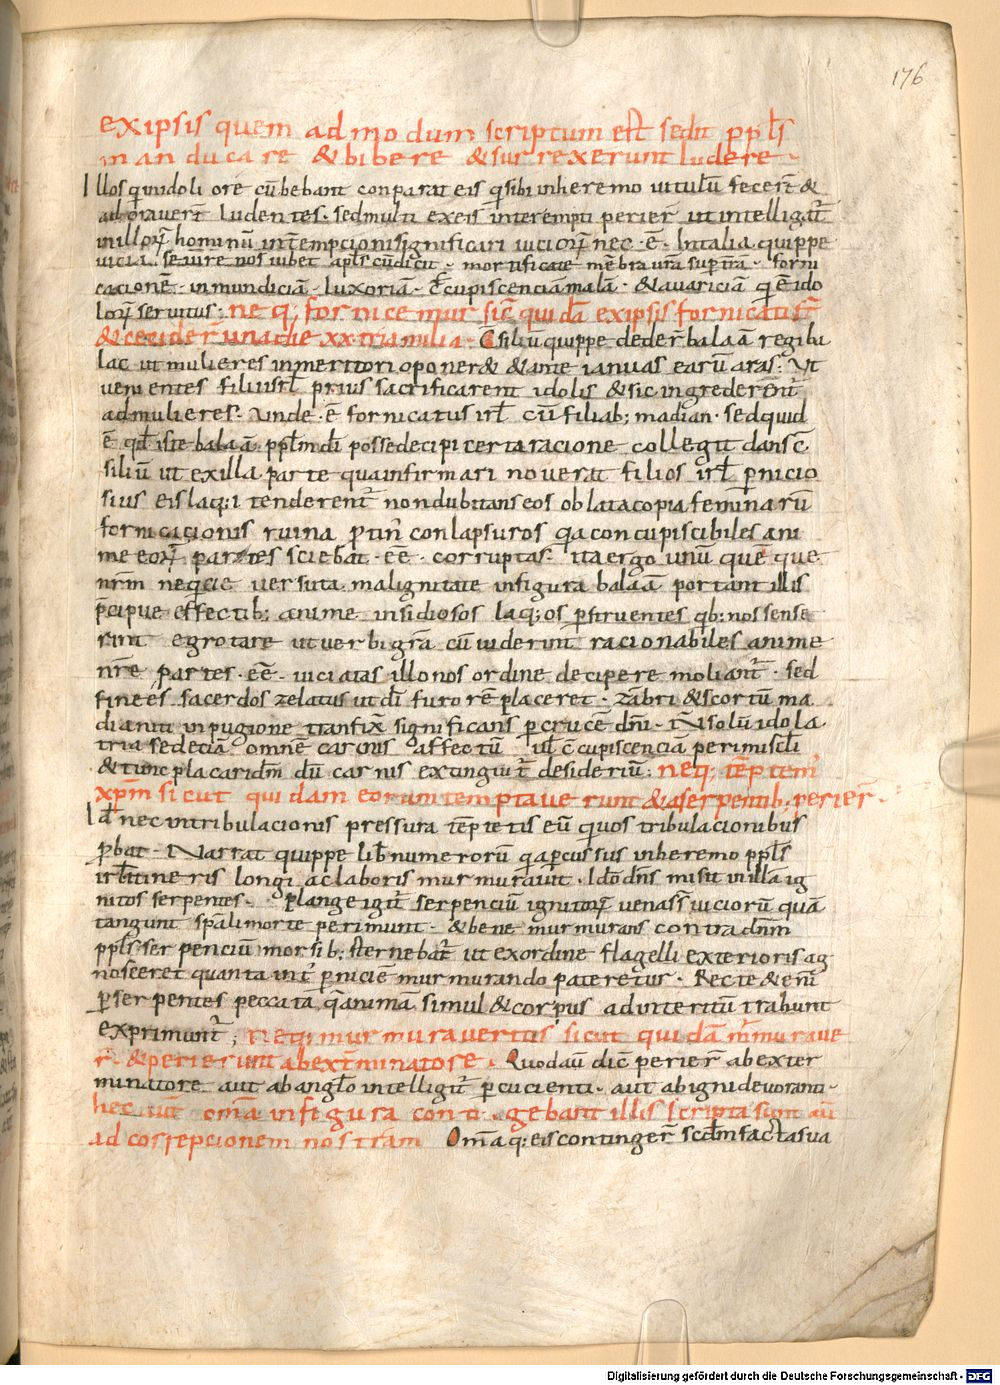 176
exipsis quem ad mo dum scriptum est sedit pp̄ls
man du ca re & bi bere & sur rexerunt ludere ·
Illos qui idoli ore cū bebant conparat eis q̄ sibi inheremo uitulū fecer̄ &
adorauer̄ ludentes · sed multi exeis interempti perier̄ ut intelligat̄
uicia · se iure nos iubet apl̄s cū dicit · mortificate mēbra ur̄a sup terrā · forni
cacionē · inmundiciā · luxoriā · c̄cupiscenciā malā · & auariciā q̄ ē ido
lor̄ seruitus : neq; fornicemur sic̄ quidā exipsis fornicati st̄
& cecider̄ una die xx tria milia · Cōsiliū quippe deder̄ balaā regi bu
lac ut mulieres inmeritori oponer& & ante ianuas earū aras · Ut
uenientes filii isrl̄ prius sacrificarent idolis & sic ingrederent̄
admulieres · Unde · ē fornicatus isrl̄ cū filiab; madian · sed quid
ē qd̄ iste balaā · pp̄lm dī posse decipi certa racione collegit dans c̄
siliū ut exilla parte qua infirmari nouerat filios isrl̄ pernicio
sius eis laq;i tenderent̄ non dubitans eos oblata copia feminarū
fornicacionis ruina ptin̄ conlapsuros q̄a concupiscibiles ani
me eor̄ partes sciebat · eē · corruptas · ita ergo unū quē que
nr̄m neq̄cie uersuta malignitate infigura balaā portant illis
p̄cipue effectib; anime insidiosos laq;os p̄struentes qb; nos sense
rint egrotare ut uerbi gr̄a cū uiderint racionabiles anime
nr̄e partes · eē · uiciatas illo nos ordine decipere moliant̄ · sed
finees · sacerdos zelatus ut dī furorē placeret · zābri & scortū ma
dianiti inpugione transfix̄ significans p̄ crucē dn̄i · Nō solū idola
tria sed etiā omnē carnis affectū ul̄ c̄cupiscenciā perimi sol̄i
& tunc placari dm̄ dū carnis extinguit̄ desideriū : neq; tēptem̄
xp̄m sicut quidam eorum temptauerunt & aserpentib; perier̄ ·
Id̄ nec intribulacionis pressura tēptetis eū quos tribulacionibus
p̄bat · Narrat quippe lib̄ numerorū q̄a percussus inheremo pp̄ls
isrl̄ itineris longi ac laboris murmurauit · Ideo dn̄s misit inillā ig
nitos serpentes · Plange igit̄ serpenciū ignitor̄ uenass̄ uiciorū quā
tangunt sp̄ali morte perimunt · & bene murmurans contra dn̄m
pp̄ls serpenciū morsib; sternebat̄ ut exordine flagelli exterioris ag
nosceret quanta int̄ pernicie murmurando pateretur · Recte & eni
p̄ serpentes peccata q̄ animā simul & corpus adinteritū trahunt
exprimunt̄ ; Neq; murmuraueritis sicut quidā m̄muraue
r̄ & perierunt abext̄minatore · Quod aū dic̄ perier̄ abexter
minatore aut abangl̄o intelligit̄ percucienti · aut abigni deuoranti ·
hec aūt om̄a infigura conti gebant illis scripta sunt aū
ad correpcionem nostram Om̄a q; eis contingēr scdm facta sua
Digitalisierung gefördert durch die Deutsche Forschungsgemeinschaft - DFG